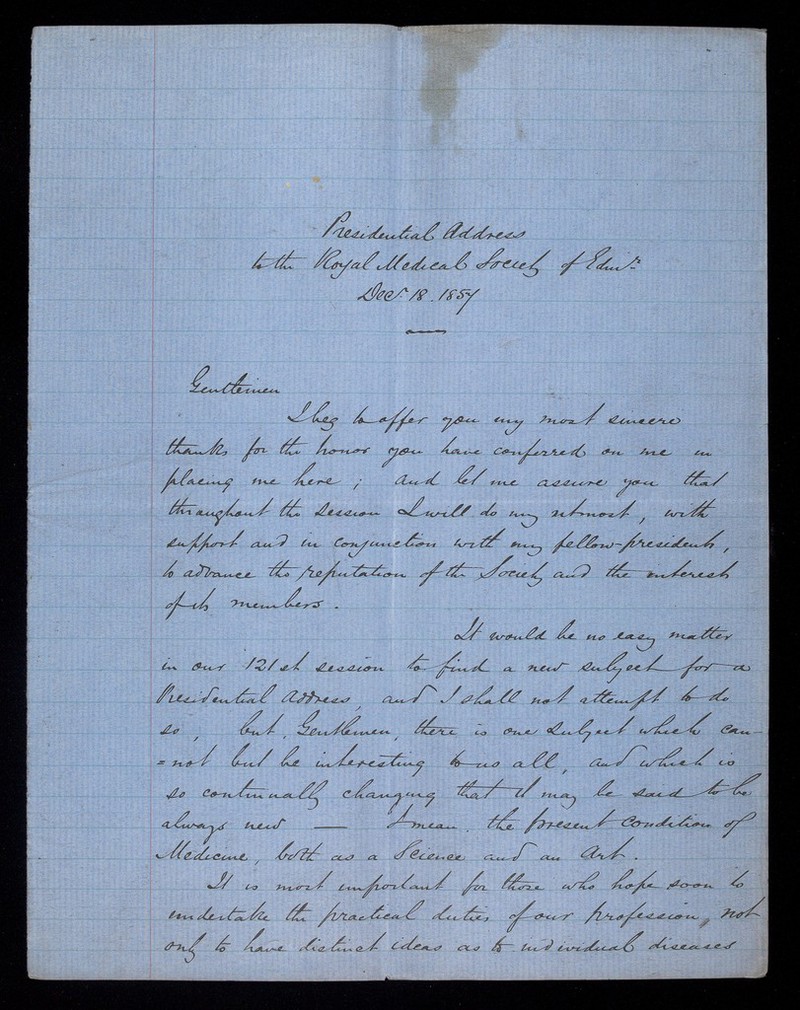 Presidential Address
to the Royal Medical Society of Edinr.
Decr. 18. 1857
Gentlemen
I beg to offer you my most sincere
thanks for the honor you have conferred on me in
placing me here ; and let me assure you that
throughout the session I will do my utmost, with
support and in conjunction with my fellow-presidents,
to advance the reputation of the Society and the interests
of its members.
It would be no easy matter
in our 121st session to find a new subject for a
Presidential Address, and I shall not attempt to do
so, but, Gentlemen, there is one subject which can-
=not but be interesting to us all, and which is
so continually changing that it may be said to be
always new — I mean, the present condition of
Medicine, both as a Science and an Art.
It is most important for those who hope soon to
undertake the practical duties of our profession, not
only to have distinct ideas as to individual diseases